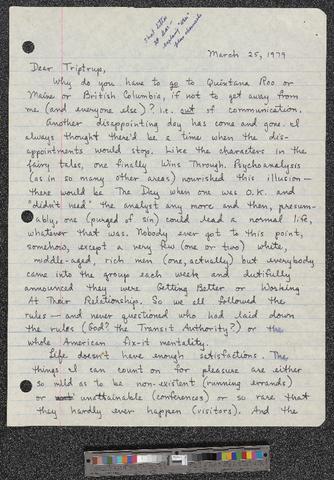 March 25, 1979
Dear Triptrup,
Why do you have to go to Quintana Roo or
Maine or British Columbia, if not to get away from
me (and everyone else)? i.e. out of communication.
Another disappointing day has come and gone. I
always thought there'd be a time when the dis-
appointments would stop. Like the characters in the
fairy tales, one finally Wins Through. Psychoanalysis
(as in so many other areas) nourished this illusion—
there would be The Day when one was O.K. and
"didn't need" the analyst any more and then, presum-
ably, one (purged of sin) could lead a normal life,
whatever that was. Nobody ever got to this point,
somehow, except a very few (one or two) white,
middle-aged, rich men (one, actually) but everybody
came into the group each week and dutifully
announced they were Getting Better or Working
At Their Relationships. So we all followed the
rules—and never questioned who had laid down
the rules (God? the Transit Authority?) or the
whole American fix-it mentality.
Life doesn't have enough satisfactions. The
things I can count on for pleasure are either
so mild as to be non-existent (running errands)
or unattainable (conferences) or so rare that
they hardly ever happen (visitors). And the